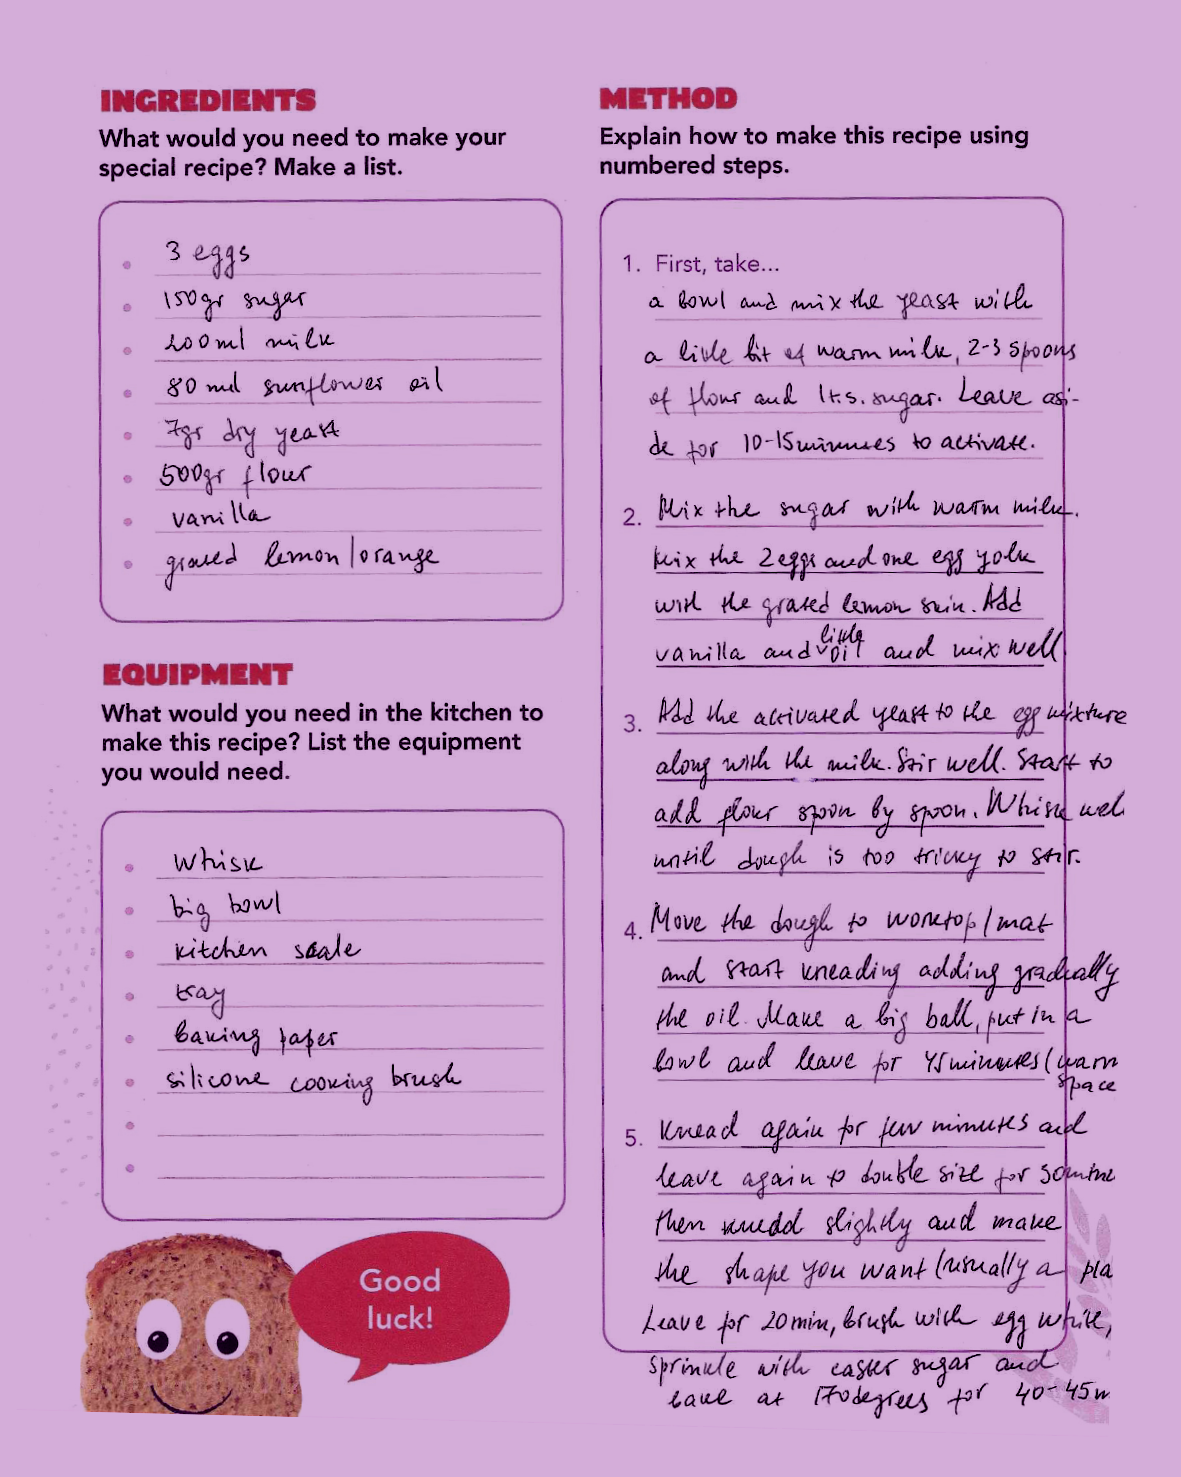 INGREDIENTS
What would you need to make your
special recipe? Make a list.
3 eggs
150gr sugar
200ml milk
80 ml sunflower oil
7gr dry yeast
500gr flour
vanilla
grated lemon/orange
EQUIPMENT
What would you need in the kitchen to
make this recipe? List the equipment
you would need.
Whisk
big bowl
kitchen scale
tray
baking paper
silicone cooking brush
Good
luck!
METHOD
Explain how to make this recipe using
numbered steps.
1. First, take...
a bowl and mix the yeast with
a little bit of warm milk, 2-3 spoons
of flour and 1t.s. sugar. Leave asi-
de for 10-15 minutes to activate.
2. Mix the sugar with warm milk.
Mix the 2 eggs and one egg yolk
with the grated lemon skin. Add
vanilla and little oil and mix well
3. Add the activated yeast to the egg mixture
along with the milk. Stir well. Start to
add flour spoon by spoon. Whisk wel
until dough is too tricky to stir.
4. Move the dough to worktop/mat
and start kneading adding gradually
the oil. Make a big ball, put in a
bowl and leave for 45 minutes (warm
space
5. Knead again for few minutes and
leave again to double size for
then slightly and make
the shape you want (usually a pla
Leave for 20min, brush with egg white,
sprinkle with caster sugar and
bake at 170degrees for 40-45m